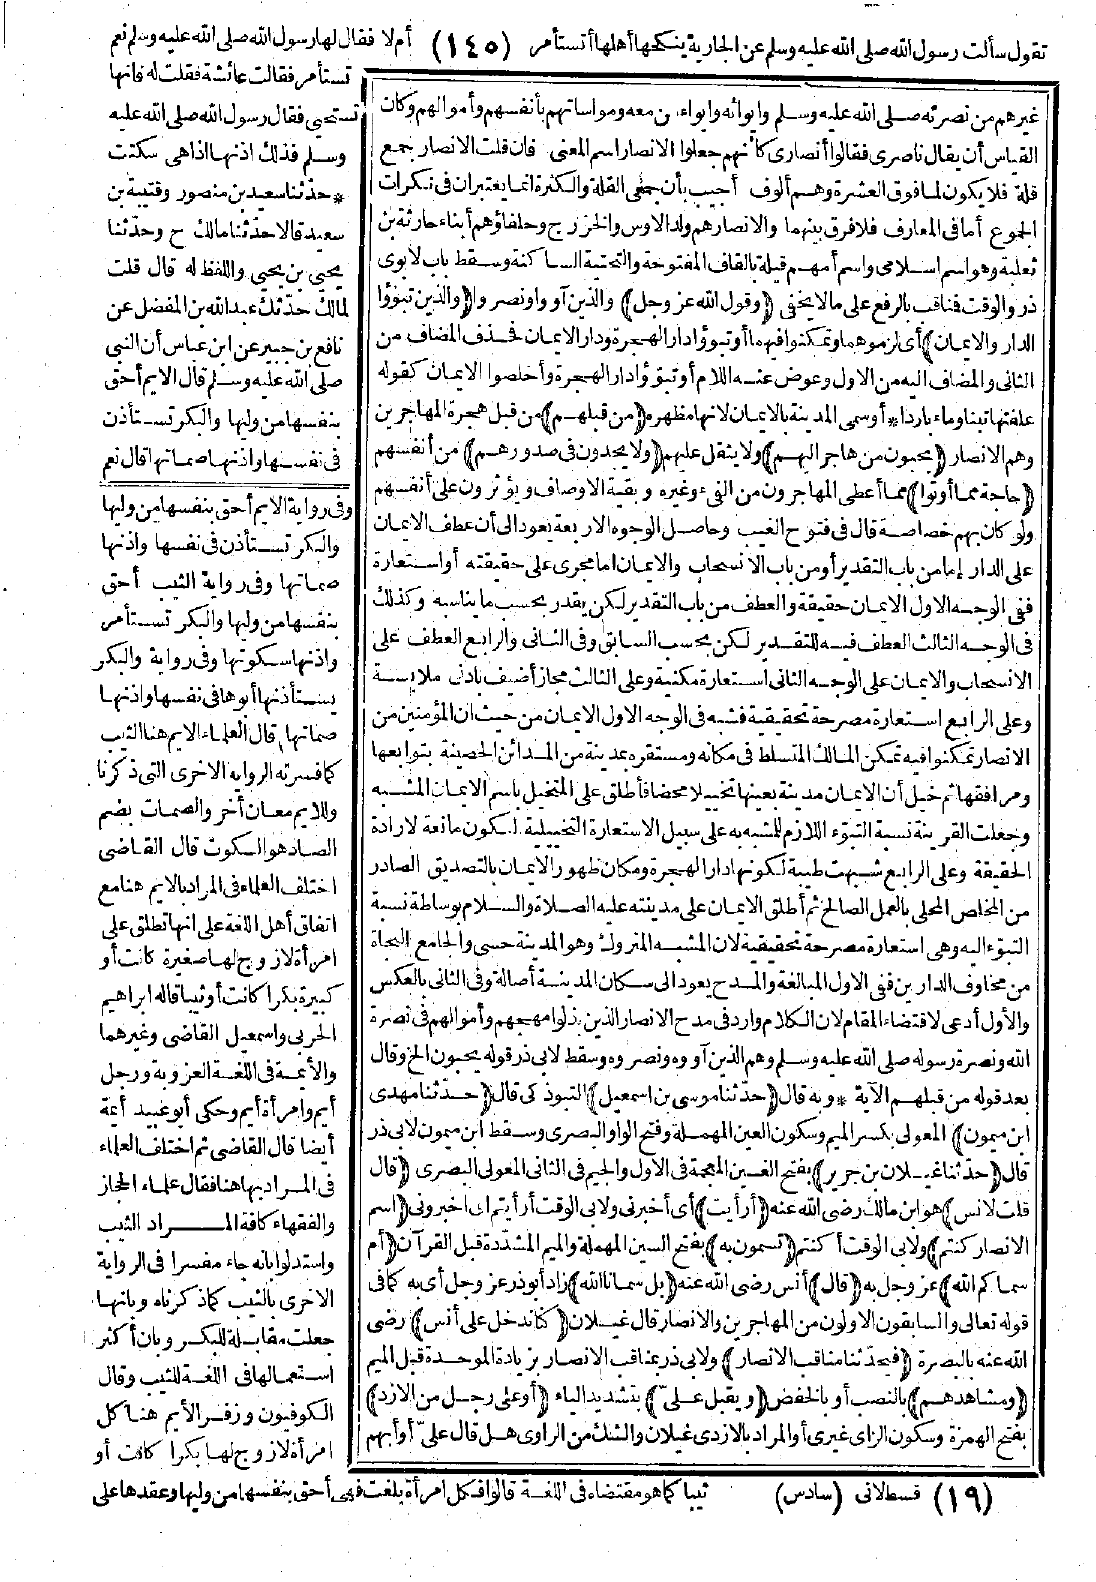 تقول سألت رسول الله صلى الله عليه وسلم عن الجارية ينكحها أهلها أتستأمر (١٤٥) أم لا فقال لها رسول الله صلى الله عليه وسلم نعم
غيرهم من نصرته صلى الله عليه وسلم وايوائه وايواء من معه ومواساتهم بأنفسهم وأموالهم وكان
القياس أن يقال ناصرى فقالوا أنصارى كأنهم جعلوا الانصار اسم المعنى فان قلت الانصار جمع
قلة فلا يكون لما فوق العشرة وهم ألوف أجيب بأن جمعى القلة والكثرة انما يعتبران فى نكرات
الجموع أما فى المعارف فلا فرق بينهما والانصار هم ولد الاوس والخزرج وحلفاؤهم أبناء حارثة بن
ثعلبة وهو اسم اسلامى واسم أمهم قيلة بالقاف المفتوحة والتحتية الساكنة وسقط باب لابوى
ذر والوقت فناقب بالرفع على ما لا يخفى ﴿وقول الله عز وجل﴾ والذين آووا ونصروا ﴿والذين تبوؤا
الدار والايمان﴾ أى لزموهما وتمكنوا فيهما أو تبوؤا دار الهجرة ودار الايمان فحذف المضاف من
الثانى والمضاف اليه من الاول وعوض عنه اللام أو تبوؤا دار الهجرة وأخلصوا الايمان كقوله
علفتها تبنا وماء باردا* أو سمى المدينة بالايمان لانها مظهره ﴿من قبلهم﴾ من قبل هجرة المهاجرين
وهم الانصار ﴿يحبون من هاجر اليهم﴾ ولا يثقل عليهم ﴿ولا يجدون فى صدورهم﴾ من أنفسهم
﴿حاجة مما أوتوا﴾ مما أعطى المهاجرون من الفىء وغيره وبقية الاوصاف ويؤثرون على أنفسهم
ولو كان بهم خصاصة قال فى فتوح الغيب وحاصل الوجوه الاربعة يعود الى أن عطف الايمان
على الدار إما من باب التقدير أو من باب الانسحاب والايمان اما مجرى على حقيقته أو استعارة
ففى الوجه الاول الايمان حقيقة والعطف من باب التقدير لكن يقدر بحسب ما يناسبه وكذلك
فى الوجه الثالث العطف فيه للتقدير لكن بحسب السابق وفى الثانى والرابع العطف على
الانسحاب والايمان على الوجه الثانى استعارة مكنية وعلى الثالث مجاز أضيف بأدنى ملابسة
وعلى الرابع استعارة مصرحة تحقيقية فشبه فى الوجه الاول الايمان من حيث ان المؤمنين من
الانصار تمكنوا فيه تمكن المالك المتسلط فى مكانه ومستقره بمدينة من المدائن الحصينة بتوابعها
ومرافقها ثم خيل أن الايمان مدينة بعينها تخييلا محضا فأطلق على المتخيل باسم الايمان المشبه
وجعلت القرينة نسبة التبوّء اللازم للمشبه به على سبيل الاستعارة التخييلية لتكون مانعة لارادة
الحقيقة وعلى الرابع شبهت طيبة لكونها دار الهجرة ومكان ظهور الايمان بالتصديق الصادر
من المخلص المحلى بالعمل الصالح ثم أطلق الايمان على مدينته عليه الصلاة والسلام بوساطة نسبة
التبوّء اليه وهى استعارة مصرحة تحقيقية لان المشبه المتروك وهو المدينة حسى والجامع النجاة
من مخاوف الدارين ففى الاول المبالغة والمدح يعود الى سكان المدينة أصالة وفى الثانى بالعكس
والأول أدعى لاقتضاء المقام لان الكلام وارد فى مدح الانصار الذين بذلوا مهجهم وأموالهم فى نصرة
الله ونصرة رسوله صلى الله عليه وسلم وهم الذين آووه ونصروه وسقط لابى ذر قوله يحبون الخ وقال
بعد قوله من قبلهم الآية * وبه قال ﴿حدثنا موسى بن اسمعيل﴾ التبوذكى قال ﴿حدثنا مهدى
ابن ميمون﴾ المعولى بكسر الميم وسكون العين المهملة وفتح الواو البصرى وسقط ابن ميمون لابى ذر
قال ﴿حدثنا غيلان بن جرير﴾ بفتح الغين المعجمة فى الاول والجيم فى الثانى المعولى البصرى ﴿قال
قلت لانس﴾ هو ابن مالك رضى الله عنه ﴿أرأيت﴾ أى أخبرنى ولابى الوقت أرأيتم اى اخبرونى ﴿اسم
الانصار كنتم﴾ ولابى الوقت أكنتم ﴿تسمون به﴾ بفتح السين المهملة والميم المشدّدة قبل القرآن ﴿أم
سماكم الله﴾ عز وجل به ﴿قال﴾ أنس رضى الله عنه ﴿بل سمانا الله﴾ زاد أبو ذر عز وجل أى به كما فى
قوله تعالى والسابقون الاولون من المهاجرين والانصار قال غيلان ﴿كنا ندخل على أنس﴾ رضى
الله عنه بالبصرة ﴿فيحدثنا مناقب الانصار﴾ ولابى ذر بمناقب الانصار بزيادة الموحدة قبل الميم
﴿ومشاهدهم﴾ بالنصب أو بالخفض ﴿ويقبل علىّ﴾ بتشديد الياء ﴿أو على رجل من الازد﴾
بفتح الهمزة وسكون الزاى غيرى أو المراد بالازدى غيلان والشك من الراوى هل قال علىّ أو أبهم
تستأمر فقالت عائشة فقلت له فانها
تستحيى فقال رسول الله صلى الله عليه
وسلم فذلك اذنها اذا هى سكتت
* حدثنا سعيد بن منصور وقتيبة بن
سعيد قالا حدثنا مالك ح وحدثنا
يحيى بن يحيى واللفظ له قال قلت
لمالك حدثك عبد الله بن الفضل عن
نافع بن جبير عن ابن عباس أن النبى
صلى الله عليه وسلم قال الايم أحق
بنفسها من وليها والبكر تستأذن
فى نفسها واذنها صماتها قال نعم
وفى رواية الايم أحق بنفسها من وليها
والبكر تستأذن فى نفسها واذنها
صماتها وفى رواية الثيب أحق
بنفسها من وليها والبكر تستأمر
واذنها سكوتها وفى رواية والبكر
يستأذنها أبوها فى نفسها واذنها
صماتها) قال العلماء الايم هنا الثيب
كما فسرته الرواية الاخرى التى ذكرنا
وللايم معان أخر والصمات بضم
الصاد هو السكوت قال القاضى
اختلف العلماء فى المراد بالايم هنا مع
اتفاق أهل اللغة على انها تطلق على
امرأة لا زوج لها صغيرة كانت أو
كبيرة بكرا كانت أو ثيبا قاله ابراهيم
الحربى واسمعيل القاضى وغيرهما
والأيمة فى اللغة العزوبة ورجل
أيم وامرأة أيم وحكى أبو عبيد أيمة
أيضا قال القاضى ثم اختلف العلماء
فى المراد بها هنا فقال علماء الحجاز
والفقهاء كافة المراد الثيب
واستدلوا بانه جاء مفسرا فى الرواية
الاخرى بالثيب كما ذكرناه وبانها
جعلت مقابلة للبكر وبان أكثر
استعمالها فى اللغة للثيب وقال
الكوفيون وزفر الأيم هنا كل
امرأة لا زوج لها بكرا كانت أو
ثيبا كما هو مقتضاه فى اللغة قالوا فكل امرأة بلغت فهى أحق بنفسها من وليها وعقدها على
(١٩) قسطلانى (سادس)